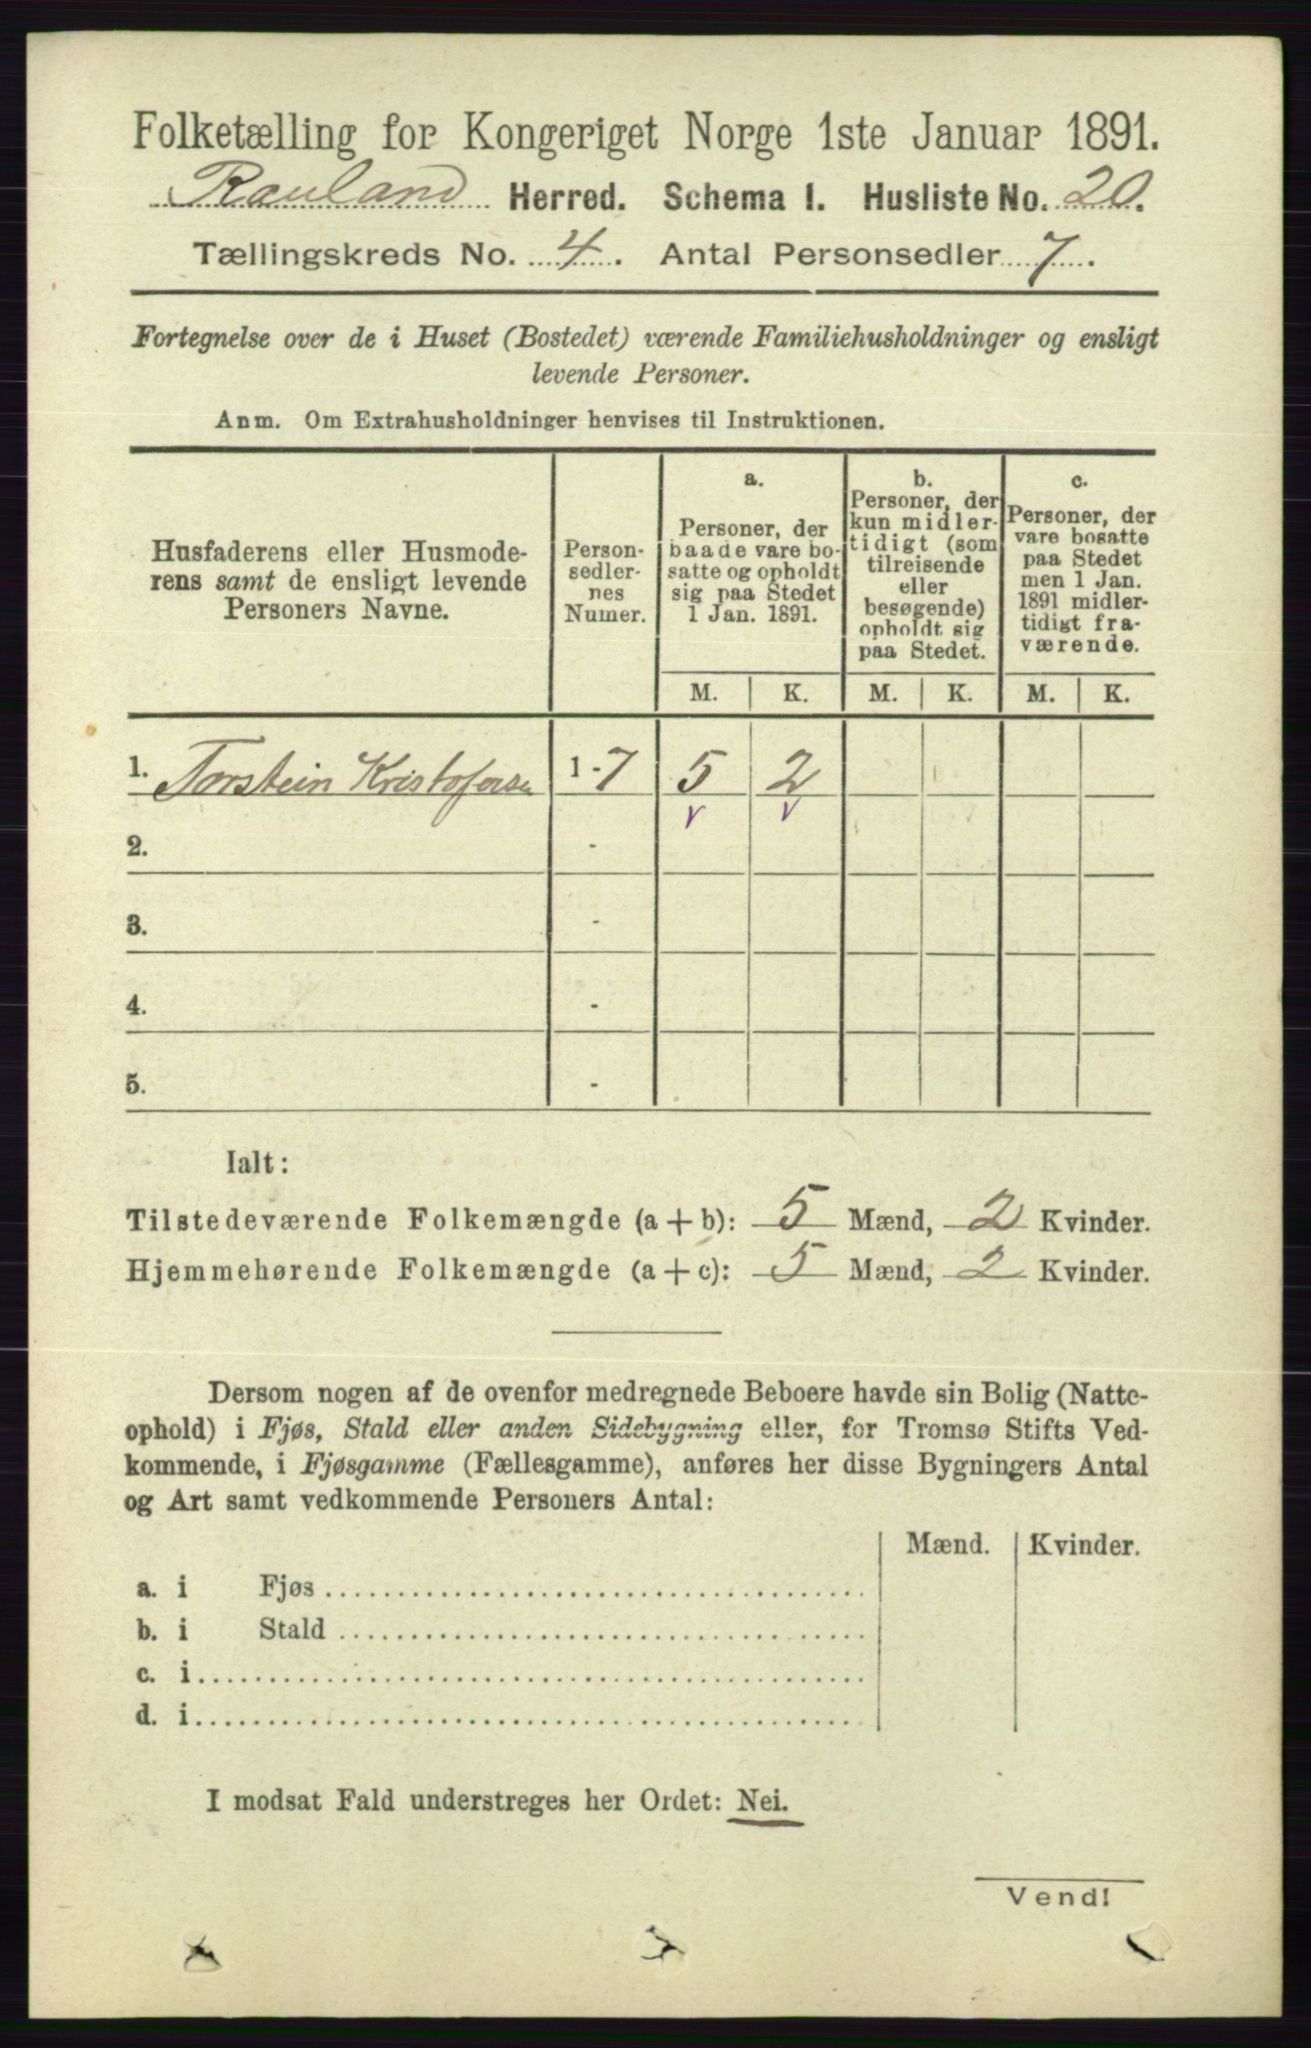 Folketælling for Kongeriget Norge 1ste Januar 1891.
Rauland Herred. Schema I. Husliste No. 20.
Tællingskreds No. 4. Antal Personsedler 7.
Fortegnelse over de i Huset (Bostedet) værende Familiehusholdninger og ensligt
levende Personer.
Anm. Om Extrahusholdninger henvises til Instruktionen.
Husfaderens eller Husmode-
rens samt de ensligt levende
Personers Navne.
Person-
sedler-
nes
Numer.
a.
Personer, der
baade vare bo-
satte og opholdt
sig paa Stedet
1 Jan. 1891.
b.
Personer, der
kun midler-
tidigt (som
tilreisende
eller
besøgende)
opholdt sig
paa Stedet.
c.
Personer, der
vare bosatte
paa Stedet
men 1 Jan.
1891 midler-
tidigt fra-
værende.
M. K. M. K. M. K.
1. Torstein Kristofersen 1-7 5 2
v v
2. -
3. -
4. -
5. -
Ialt:
Tilstedeværende Folkemængde (a + b): 5 Mænd, 2 Kvinder.
Hjemmehørende Folkemængde (a + c): 5 Mænd, 2 Kvinder.
Dersom nogen af de ovenfor medregnede Beboere havde sin Bolig (Natte-
ophold) i Fjøs, Stald eller anden Sidebygning eller, for Tromsø Stifts Ved-
kommende, i Fjøsgamme (Fællesgamme), anføres her disse Bygningers Antal
og Art samt vedkommende Personers Antal:
Mænd. Kvinder.
a. i Fjøs
b. i Stald
c. i
d. i
I modsat Fald understreges her Ordet: Nei.
Vend!